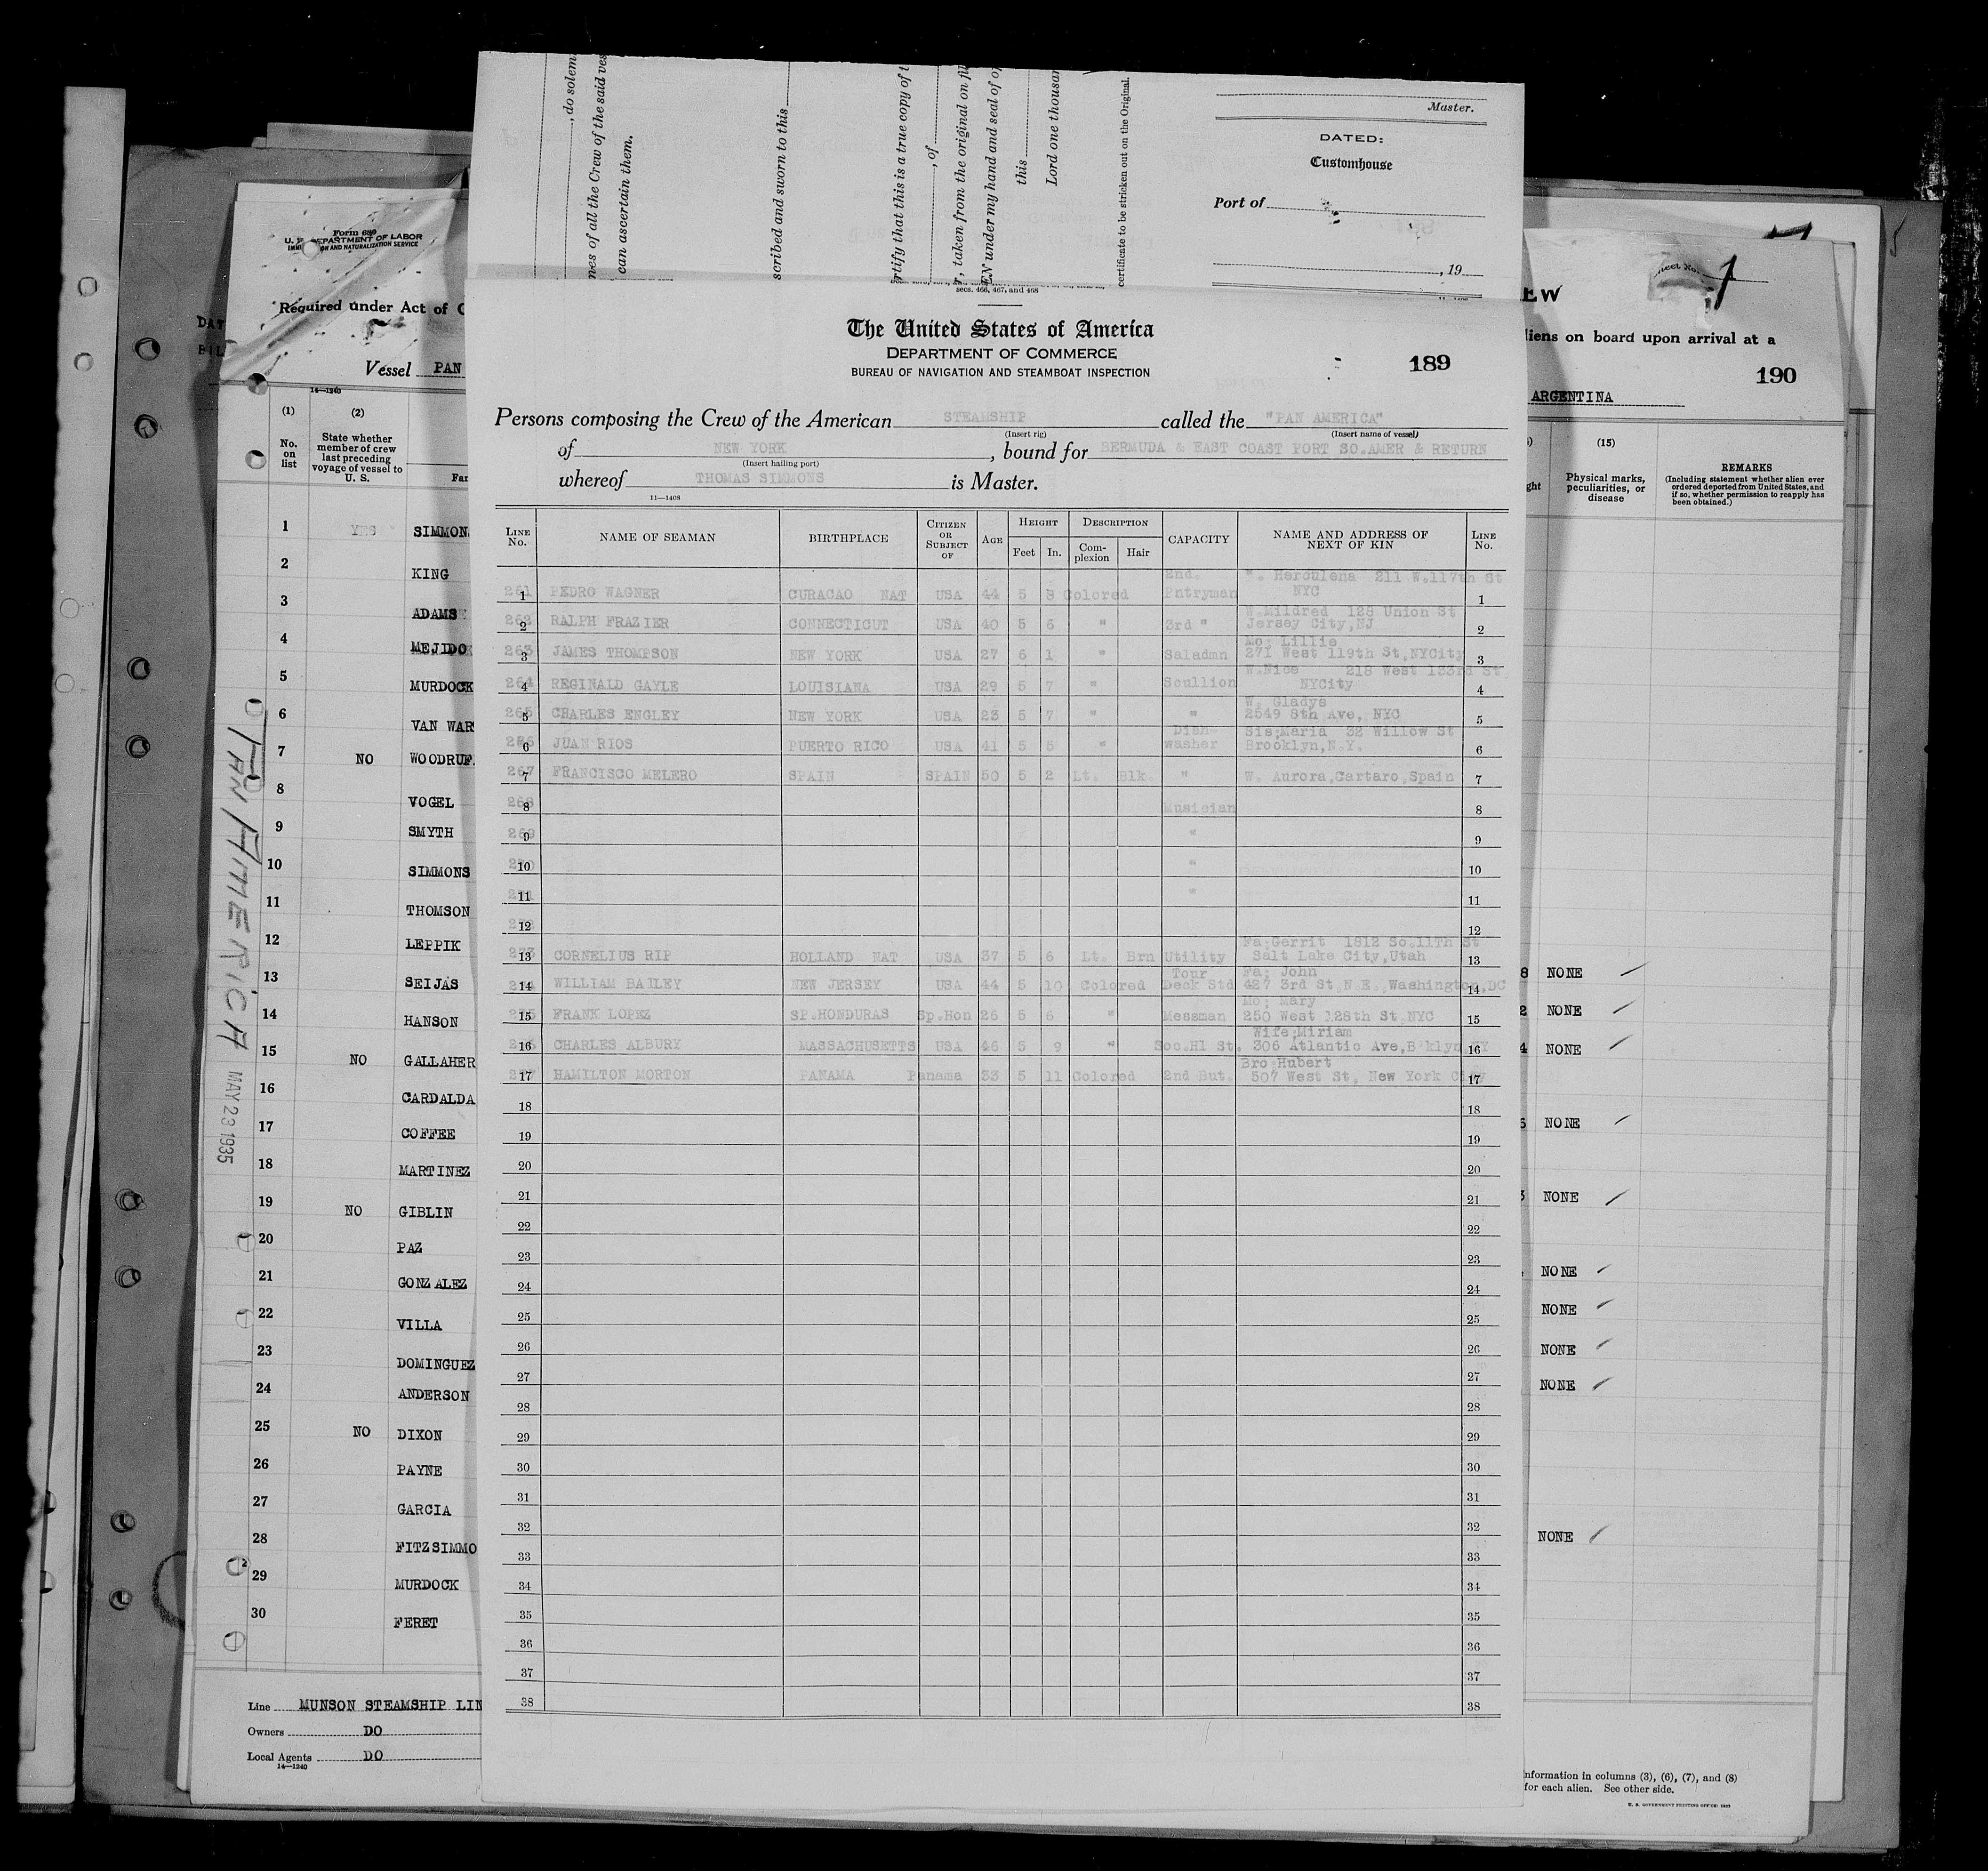 , do solem
nes of all the Crew of the said ves
can ascertain them.
scribed and sworn to this
rtify that this is a true copy of t
, of
r, taken from the original on fil
EN under my hand and seal of of
this
Lord one thousan
certificate to be stricken out on the Original.
Master.
DATED:
Customhouse
Port of
, 19
secs. 466, 467, and 468
The United States of America
DEPARTMENT OF COMMERCE
BUREAU OF NAVIGATION AND STEAMBOAT INSPECTION
189
Persons composing the Crew of the American STEAMSHIP called the "PAN AMERICA"
(Insert rig) (Insert name of vessel)
of NEW YORK, bound for BERMUDA & EAST COAST PORT SO.AMER & RETURN
(Insert hailing port)
whereof THOMAS SIMMONS is Master.
11—1408
LINE No. NAME OF SEAMAN BIRTHPLACE CITIZEN OR SUBJECT OF AGE HEIGHT Feet In. DESCRIPTION Complexion Hair CAPACITY NAME AND ADDRESS OF NEXT OF KIN LINE No.
2nd. Herculena 211 W.117th St
261 1 PEDRO WAGNER CURACAO NAT USA 44 5 8 Colored Pntryman NYC 1
W.Mildred 128 Union St
262 2 RALPH FRAZIER CONNECTICUT USA 40 5 6 " 3rd " Jersey City,NJ 2
Mo; Lillie
263 3 JAMES THOMPSON NEW YORK USA 27 6 1 " Saladmn 271 West 119th St,NYCity 3
W.Nice 218 West 133rd St
264 4 REGINALD GAYLE LOUISIANA USA 29 5 7 " Scullion NYCity 4
W. Gladys
265 5 CHARLES ENGLEY NEW YORK USA 23 5 7 " " 2549 8th Ave, NYC 5
Dish- Sis;Maria 32 Willow St
266 6 JUAN RIOS PUERTO RICO USA 41 5 5 " washer Brooklyn,N.Y. 6
267 7 FRANCISCO MELERO SPAIN SPAIN 50 5 2 Lt. Blk. " W. Aurora,Cartaro,Spain 7
268 8 Musician 8
269 9 " 9
270 10 " 10
271 11 " 11
272 12 12
Fa;Gerrit 1812 So.11Th St
273 13 CORNELIUS RIP HOLLAND NAT USA 37 5 6 Lt. Brn Utility Salt Lake City,Utah 13
Tour Fa; John
274 14 WILLIAM BAILEY NEW JERSEY USA 44 5 10 Colored Deck Std 427 3rd St,N.E. Washington,DC 14
Mo; Mary
275 15 FRANK LOPEZ SP.HONDURAS Sp.Hon 26 5 6 " Messman 250 West 128th St,NYC 15
Wife;Miriam
276 16 CHARLES ALBURY MASSACHUSETTS USA 46 5 9 " Soc.Hl St. 306 Atlantic Ave,B'klyn,NY 16
Bro;Hubert
277 17 HAMILTON MORTON PANAMA Panama 33 5 11 Colored 2nd But. 507 West St, New York City 17
18 18
19 19
20 20
21 21
22 22
23 23
24 24
25 25
26 26
27 27
28 28
29 29
30 30
31 31
32 32
33 33
34 34
35 35
36 36
37 37
38 38
Form 689
U. S. DEPARTMENT OF LABOR
IMMIGRATION AND NATURALIZATION SERVICE
Required under Act of C
Vessel PAN
14—1240
(1) (2)
No. on list
State whether member of crew last preceding voyage of vessel to U. S.
Far
1 YES SIMMON
2 KING
3 ADAMS
4 MEJIDO
5 MURDOCK
6 VAN WAR
7 NO WOODRUF
8 VOGEL
9 SMYTH
10 SIMMONS
11 THOMSON
12 LEPPIK
13 SEIJAS
14 HANSON
15 NO GALLAHER
16 CARDALDA
17 COFFEE
18 MARTINEZ
19 NO GIBLIN
20 PAZ
21 GONZALEZ
22 VILLA
23 DOMINGUEZ
24 ANDERSON
25 NO DIXON
26 PAYNE
27 GARCIA
28 FITZSIMMO
29 MURDOCK
30 FERET
PAN AMERICA MAY 23 1935
Line MUNSON STEAMSHIP LIN
Owners DO
Local Agents DO
14—1240
DAT
BIL
EW
liens on board upon arrival at a
190
ARGENTINA
(15)
ght
Physical marks, peculiarities, or disease
REMARKS
(Including statement whether alien ever ordered deported from United States, and if so, whether permission to reapply has been obtained.)
8 NONE
2 NONE
4 NONE
NONE
NONE
NONE
NONE
NONE
NONE
NONE
nformation in columns (3), (6), (7), and (8)
for each alien. See other side.
U. S. GOVERNMENT PRINTING OFFICE